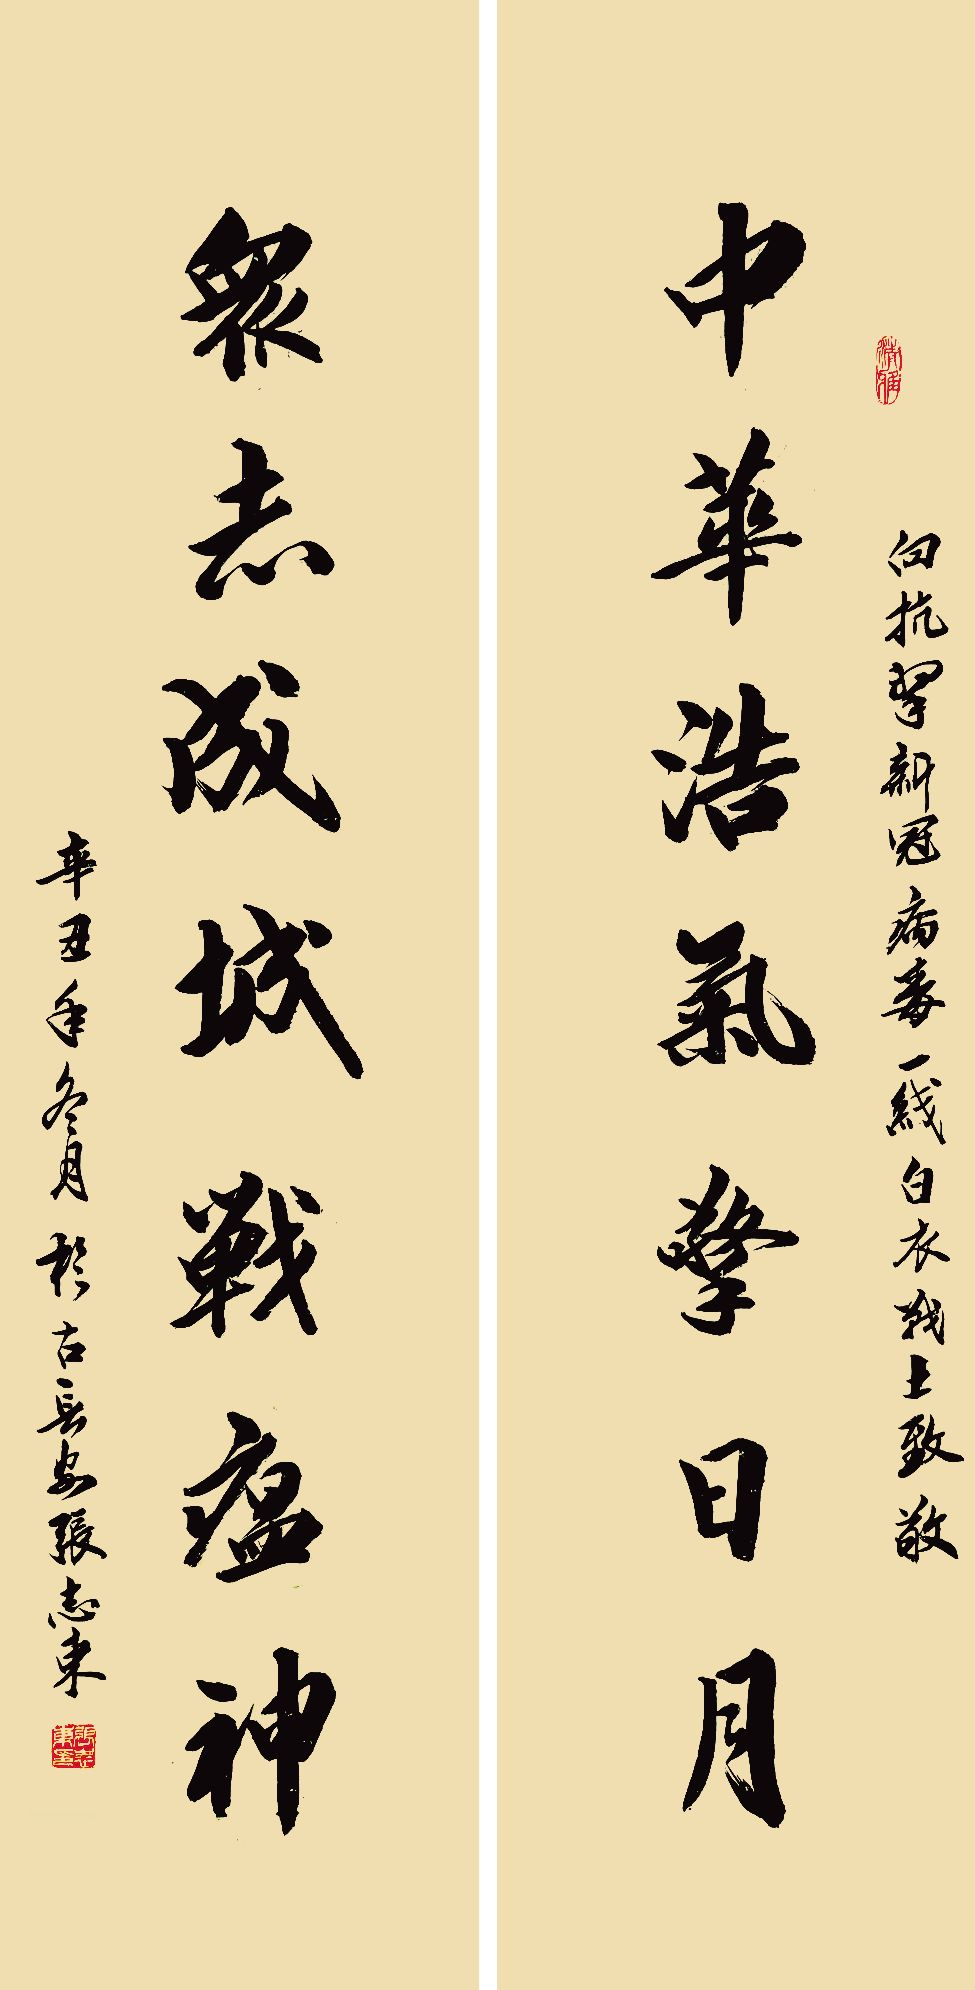 向抗擊新冠病毒一线白衣战士致敬
中華浩氣擎日月
眾志成城戰瘟神
辛丑年冬月於古長安張志東